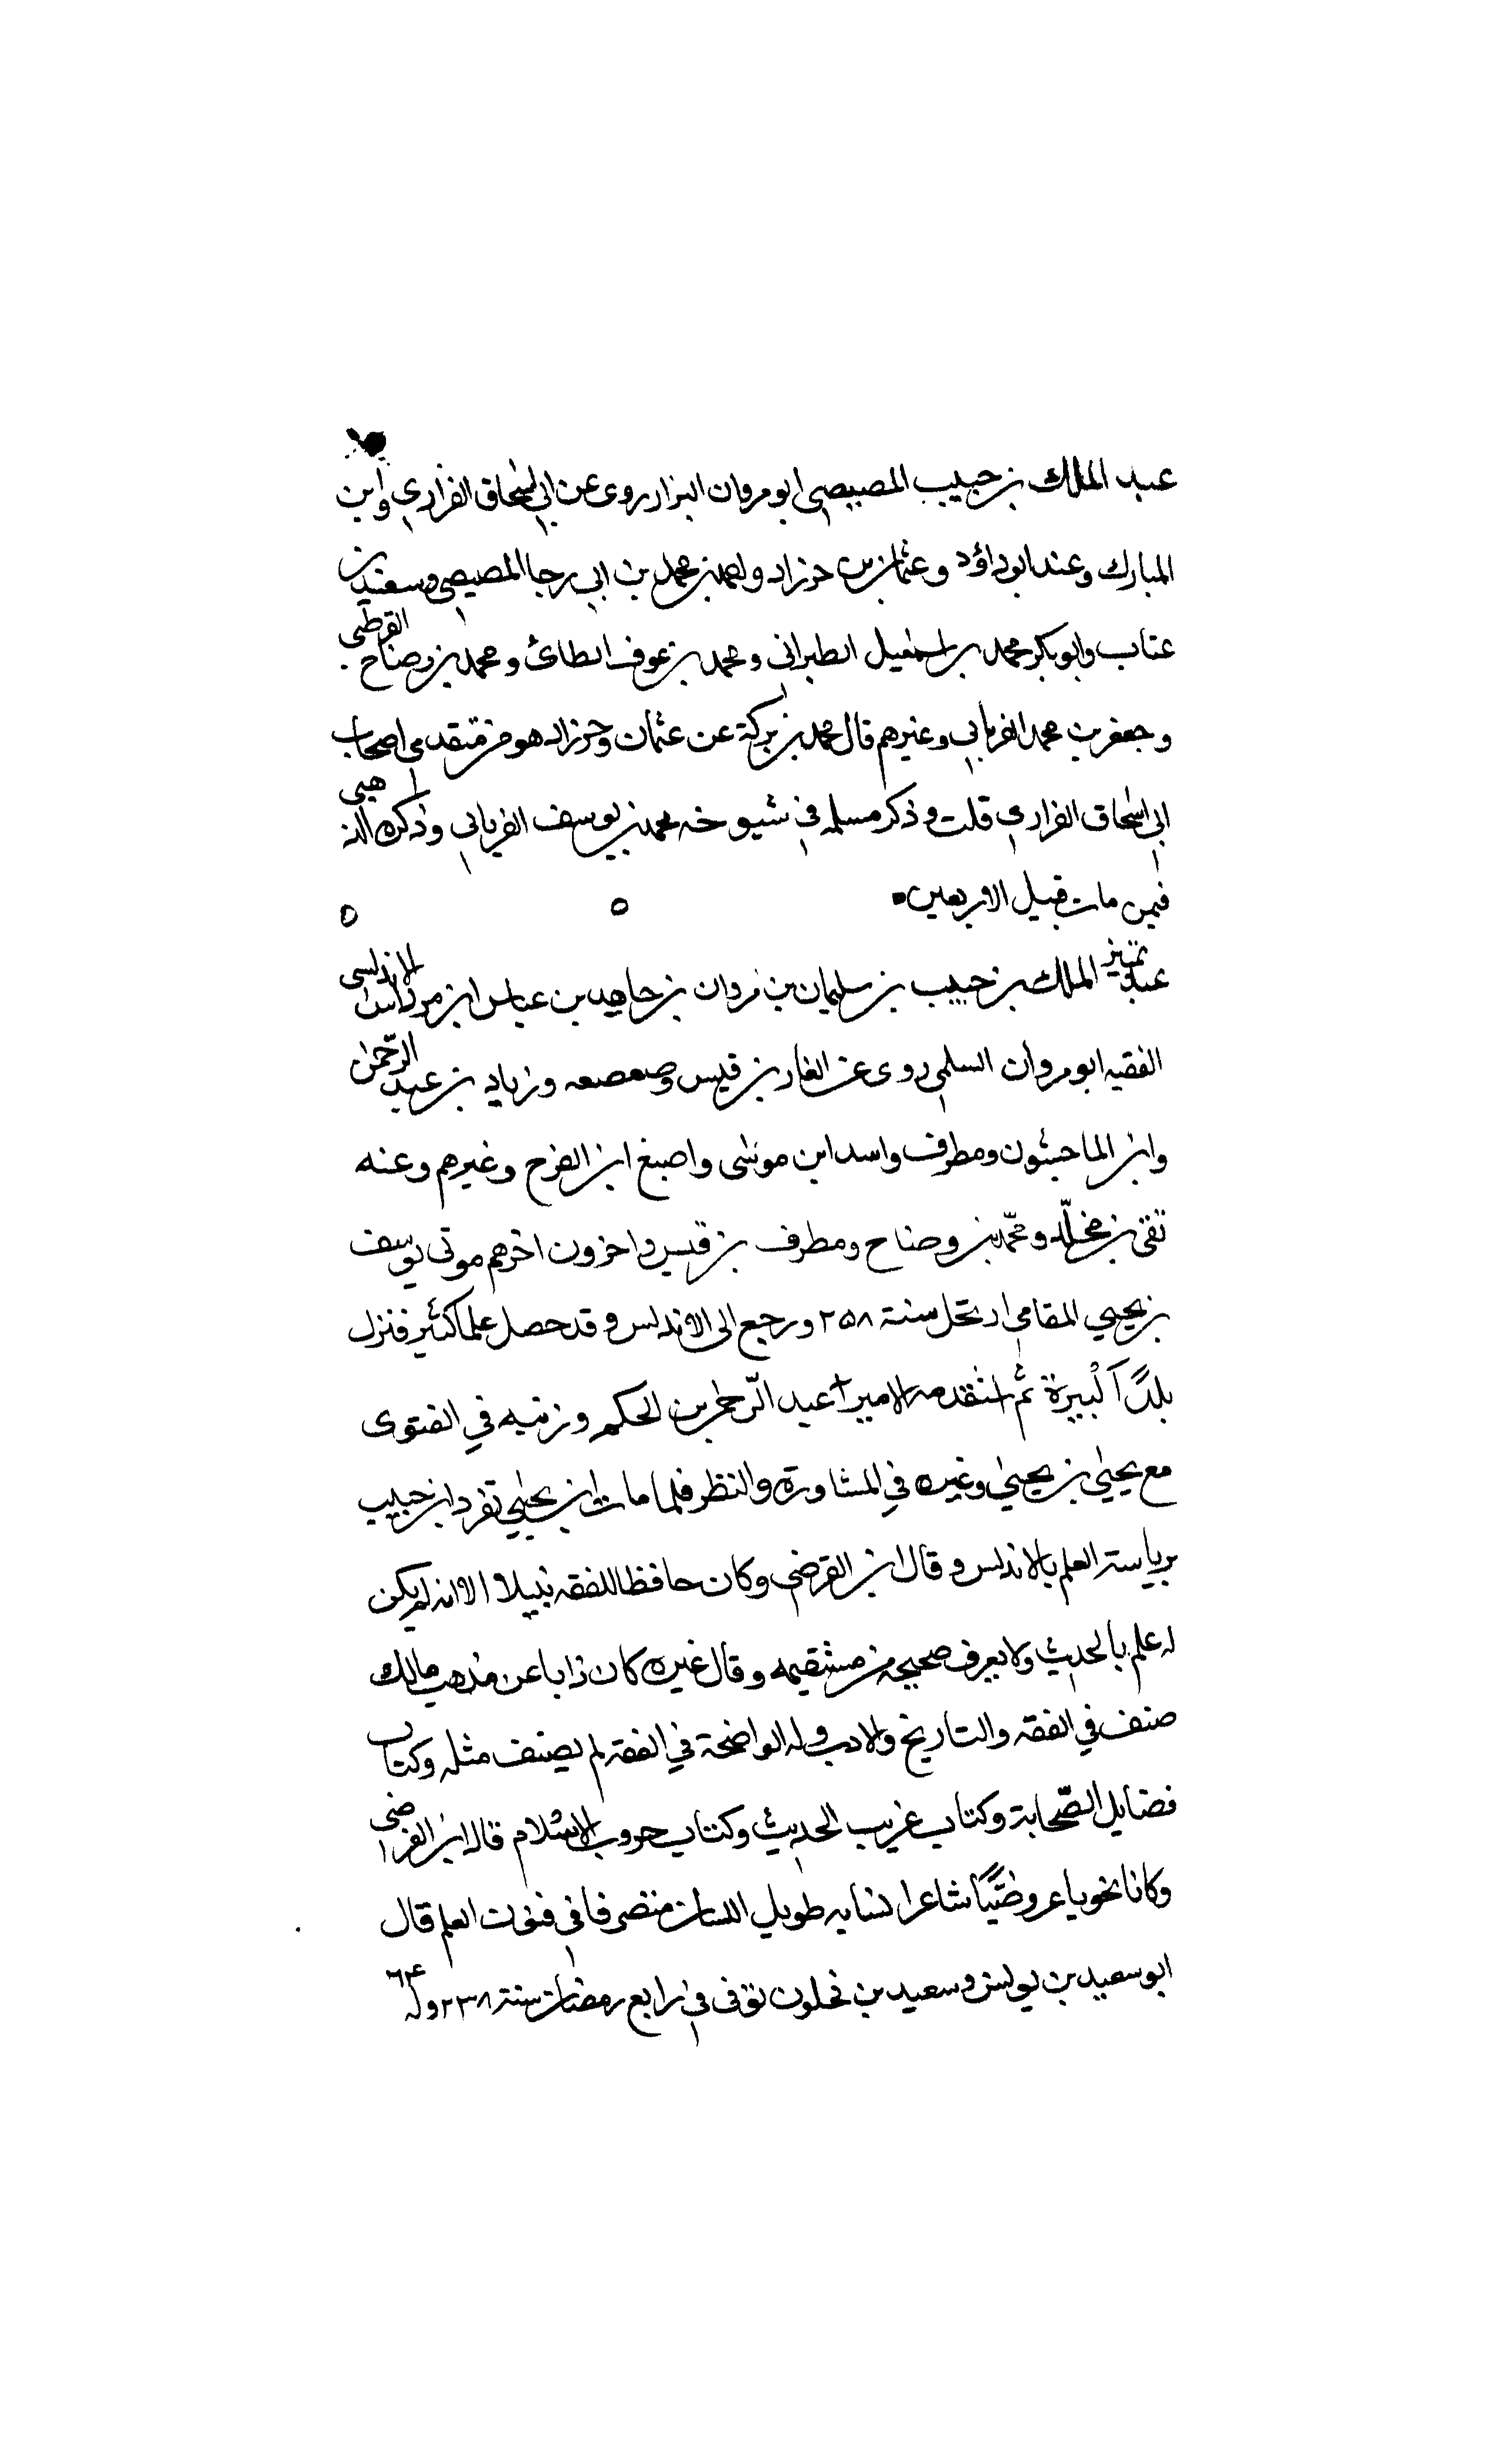 عبد الملك بن حبيب المصيصي ابو مروان البزار روى عن ابي اسحاق الفزاري وابن
المبارك وعنه ابو داؤد وعثمان بن خرزاد واحمد بن محمد بن ابي رجا المصيصي وسعيد بن
عتاب وابو بكر محمد بن اسمعيل الطبراني ومحمد بن عوف الطائ ومحمد بن وضاح القرطبي
وجعفر بن محمد الفريابي وغيرهم قال محمد بن بركة عن عثمان وخرزاد هو من متقدمي اصحاب
ابي اسحاق الفزاري قلت وذكر مسلمه في شيوخه محمد بن يوسف الفريابي وذكره الذهبي
فيمن مات قبيل الاربعين
تمييز عبد الملك بن حبيب بن سليمان بن مروان بن جاهمه بن عباس ابن مرداس الاندلسي
الفقيه ابو مروان السلمي روى عن الغاز بن قيس وصعصعه وزياد بن عبد الرحمن
وابن الماجشون ومطرف واسد ابن موسى واصبغ ابن الفرج وغيرهم وعنه
بقي بن مخلد ومحمد بن وضاح ومطرف بن قيس واخرون اخرهم موتى يوسف
بن يحيي المقامي ارتحل سنة ٢٥٨ ورجع الى الاندلس وقد حصل علما كثير فنزل
بلدً اَلْبيرة ثم استقدمه الامير عبد الرّحمن بن الحكم ورتبه في الفتوى
مع يحيٰي بن يحيٰي وغيره في المشاورة والنظر فلما مات ابن يحيٰي تفرد ابن حبيب
برياسة العلم بالاندلس وقال ابن القرضي وكان حافظا للفقه نبيلا الا انه لم يكن
له علم بالحديث ولا يعرف صحيحه من مستقيمه وقال غيره كان ذابا عن مذهب مالك
صنف في الفقه والتاريخ والادب وله الواضحة في الفقه لم يصنف مثله وكتاب
فضايل الصّحابة وكتاب غريب الحديث وكتاب حروب الاسلام قال ابن الفرضي
وكان نحويا عروضيًّا شاعرا نسابه طويل اللسان متصرفا في فنون العلم قال
ابو سعيد بن يونس وسعيد بن فحلون توفى في رابع رمضان سنة ٢٣٨ وله ٦٤